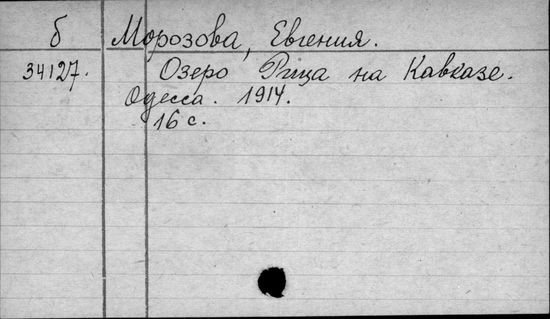 б Морозова, Евгения.
34127. Озеро Рица на Кавказе.
Одесса. 1914.
16 с.